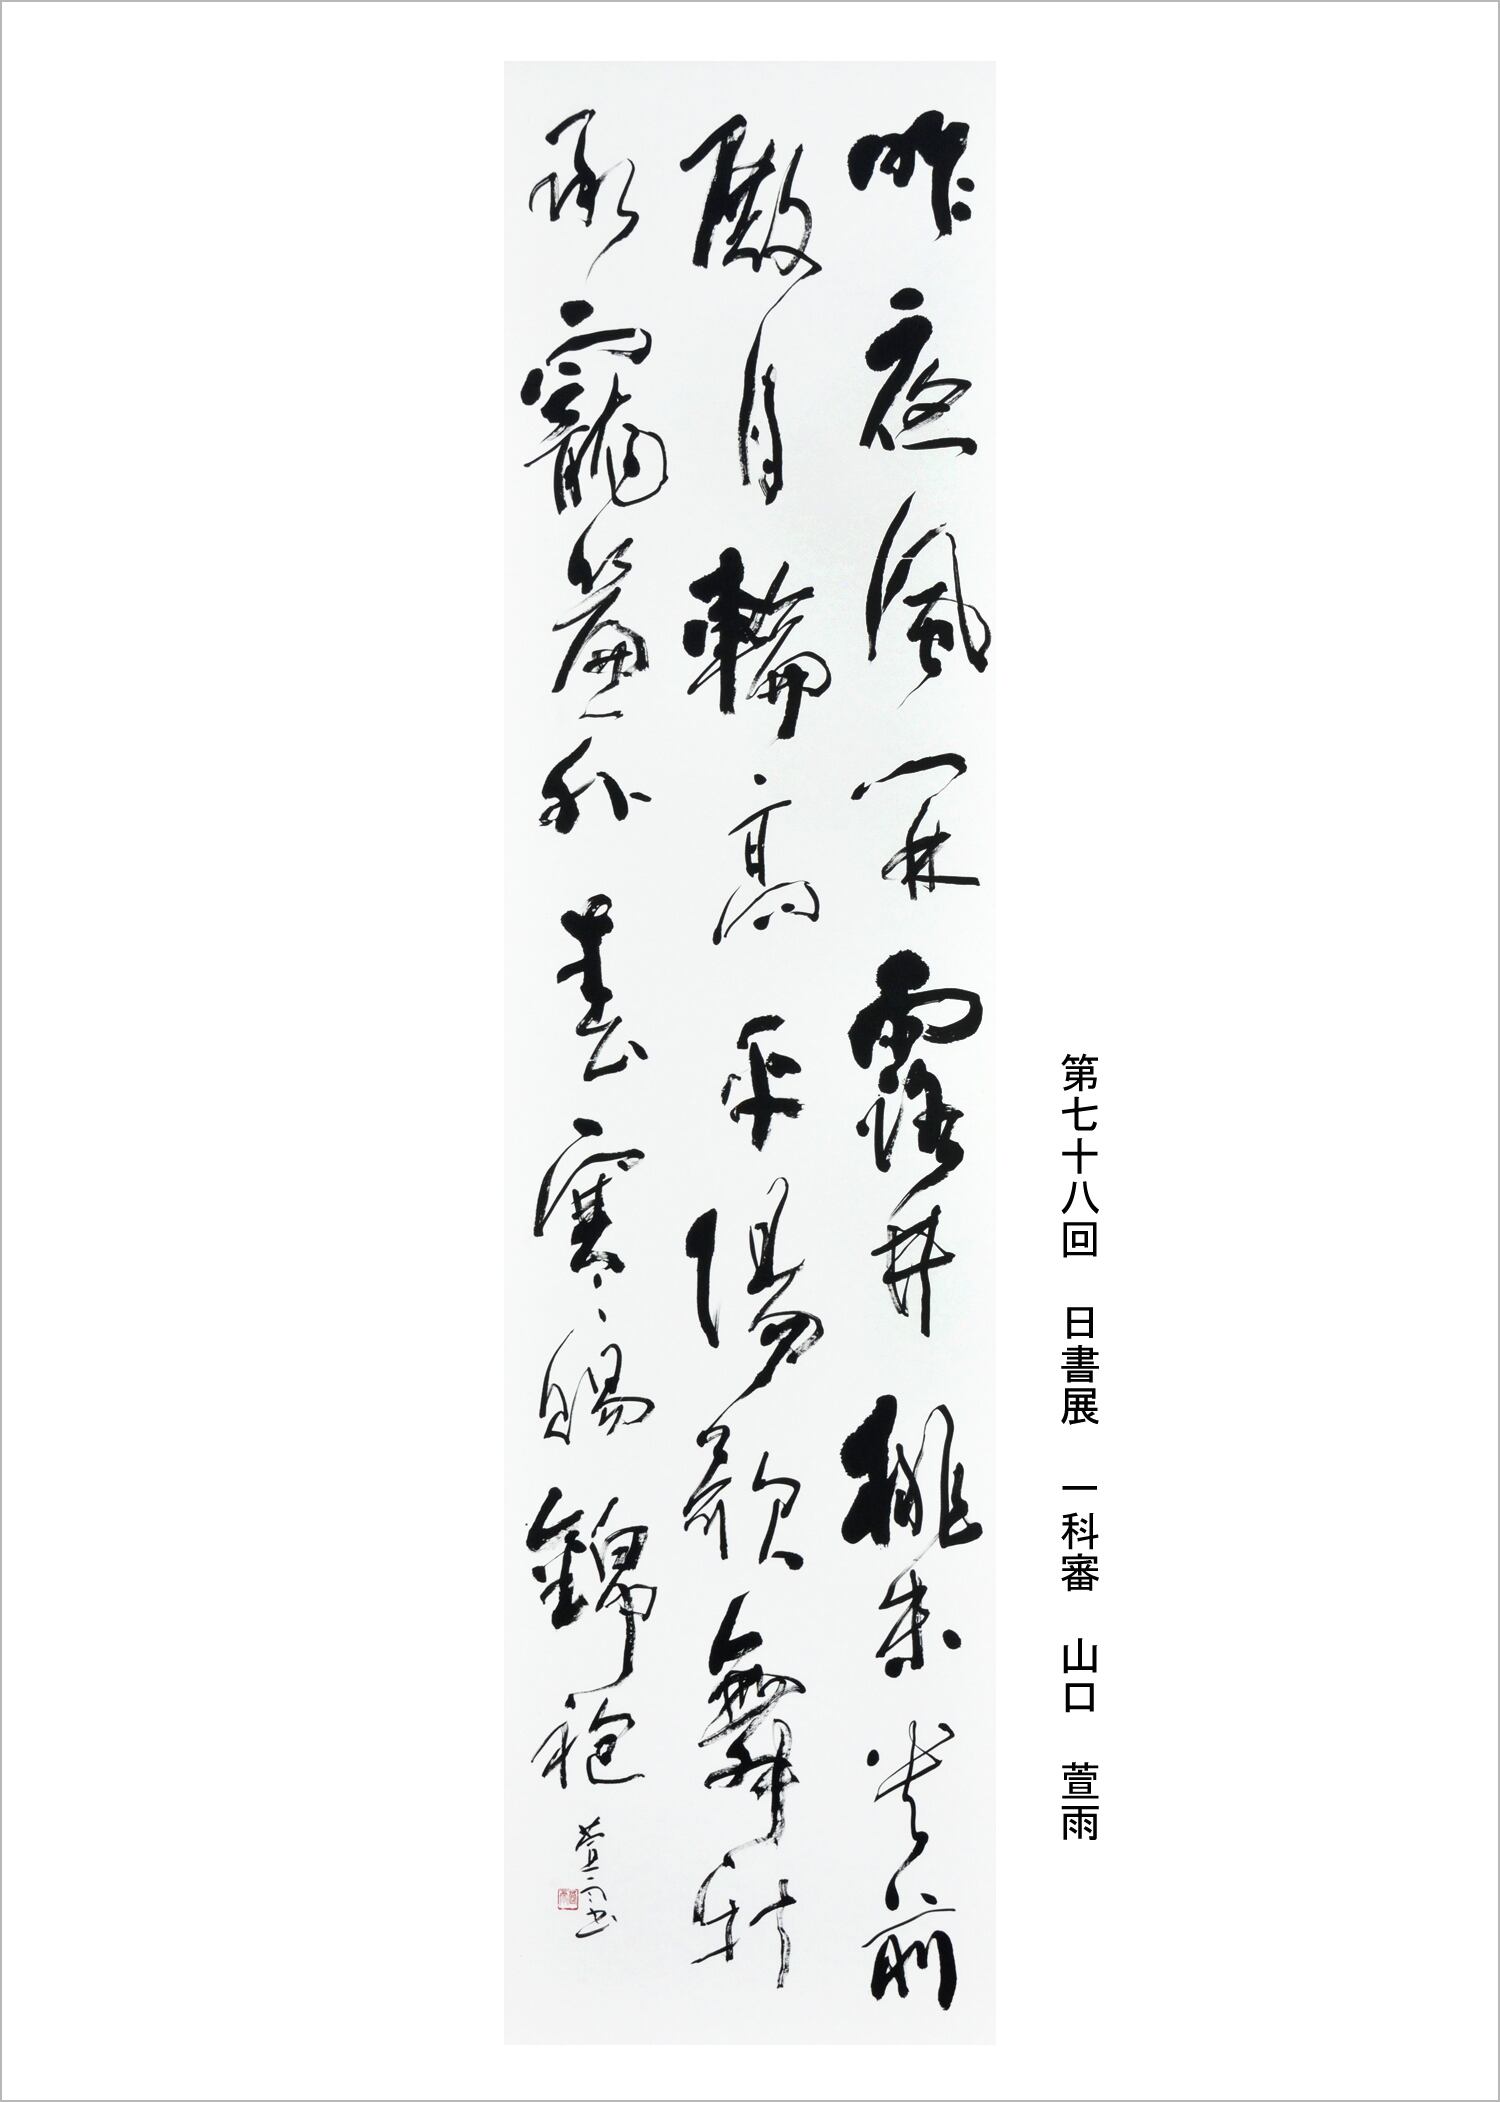 第七十八回　日書展　一科審　山口　萱雨
昨夜風開露井桃未央前
殿月輪高平陽歌舞新
承寵簾外春寒賜錦袍
萱雨書